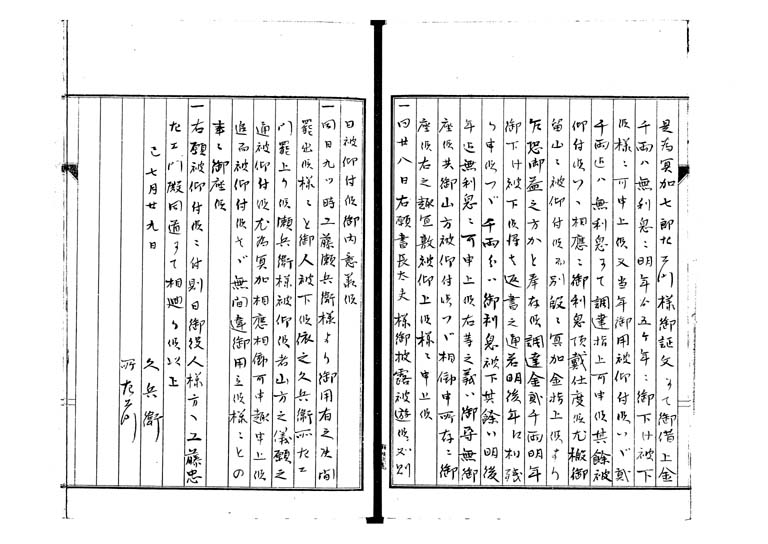 是為冥加七郎左衛門様御証文ニて御借上金
千両ハ無利息ニ明年ゟ五ケ年ニ御下ケ被下
候様ニ可申上候又当年御用被仰付候ハヽ弐
千両迄ハ無利息ニて調達指上可申候其餘被
仰付候ハヽ相應ニ御利息頂戴仕度候尤搬御
留山ニ被仰付候ハ別段ニ冥加金指上候より
乍恐御益之方かと奉存候調達金弐千両明年
御下ケ被下候得と返書之通若明後年に相残
り申候ハヽ千両分ハ御利息被下其餘ハ明後
年迄無利息ニ可申上候右等之義ハ御尋無御
座候共御山方被仰付候ハヽ相働申所存ニ御
座候右之趣宜敷被仰上候様ニ申上候
一同廿八日右願書長太夫様御披露被遊候処則
日被仰付候御内意義候
一同日九ツ時工藤瀬兵衛様より御用有之候間
罷出候様ニと御人被下候依之久兵衛所左エ
門罷上り候瀬兵衛様被仰候者山方之儀願之
通被仰付候尤為冥加相應相働可申趣申上候
追而被仰付候そヽ無間違御用立候様ニとの
事ニ御座候
一右願被仰付候ニ付則日御役人様方ハ工藤忠
左エ門殿同道ニて相廻り候以上
己七月廿九日
久兵衛
所左衛門